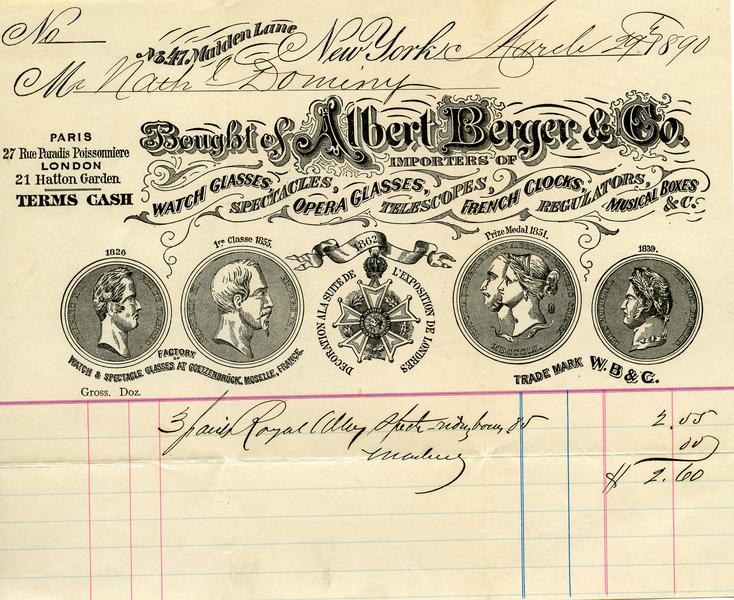 No
No 47 Maiden Lane
New York, March 29th 1890
Mr Nath E Dominy
PARIS
27 Rue Paradis Poissonniere
LONDON
21 Hatton Garden
TERMS CASH
Bought of Albert Berger & Co.
IMPORTERS OF
WATCH GLASSES, SPECTACLES, OPERA GLASSES, TELESCOPES, FRENCH CLOCKS, REGULATORS, MUSICAL BOXES
& C.
1826
1re Classe 1855.
1862
DECORATION A LA SUITE DE L'EXPOSITION DE LONDRES
Prize Medal 1851.
1839.
FACTORY
OF
WATCH & SPECTACLE GLASSES AT GOETZENBRÜCK, MOSELLE, FRANCE.
TRADE MARK W. B & C.
Gross. Doz.
3 pairs Royal Alloy Spects 85 2.55
$ 2.60